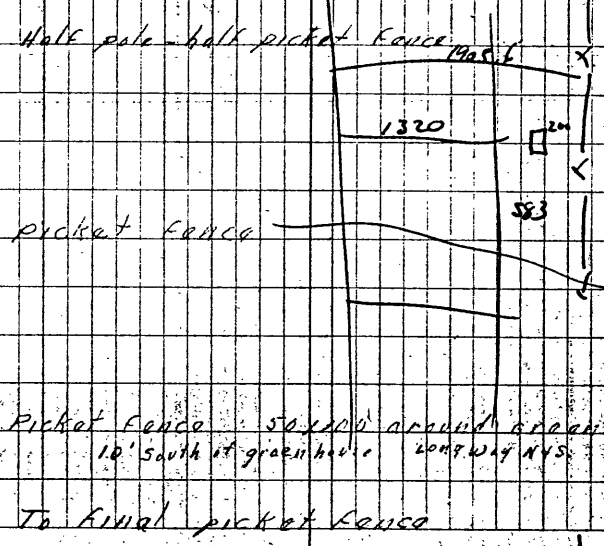 Half pole - half picket fence
1905.6
1320
200
583
picket fence
Picket fence 50x100' around green
10' South of greenhouse Long way N&S.
To final picket fence